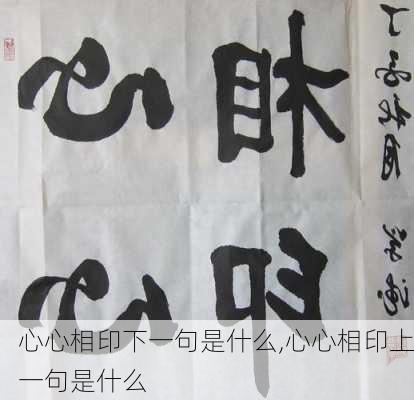 心心
相印
心心相印下一句是什么,心心相印上
一句是什么